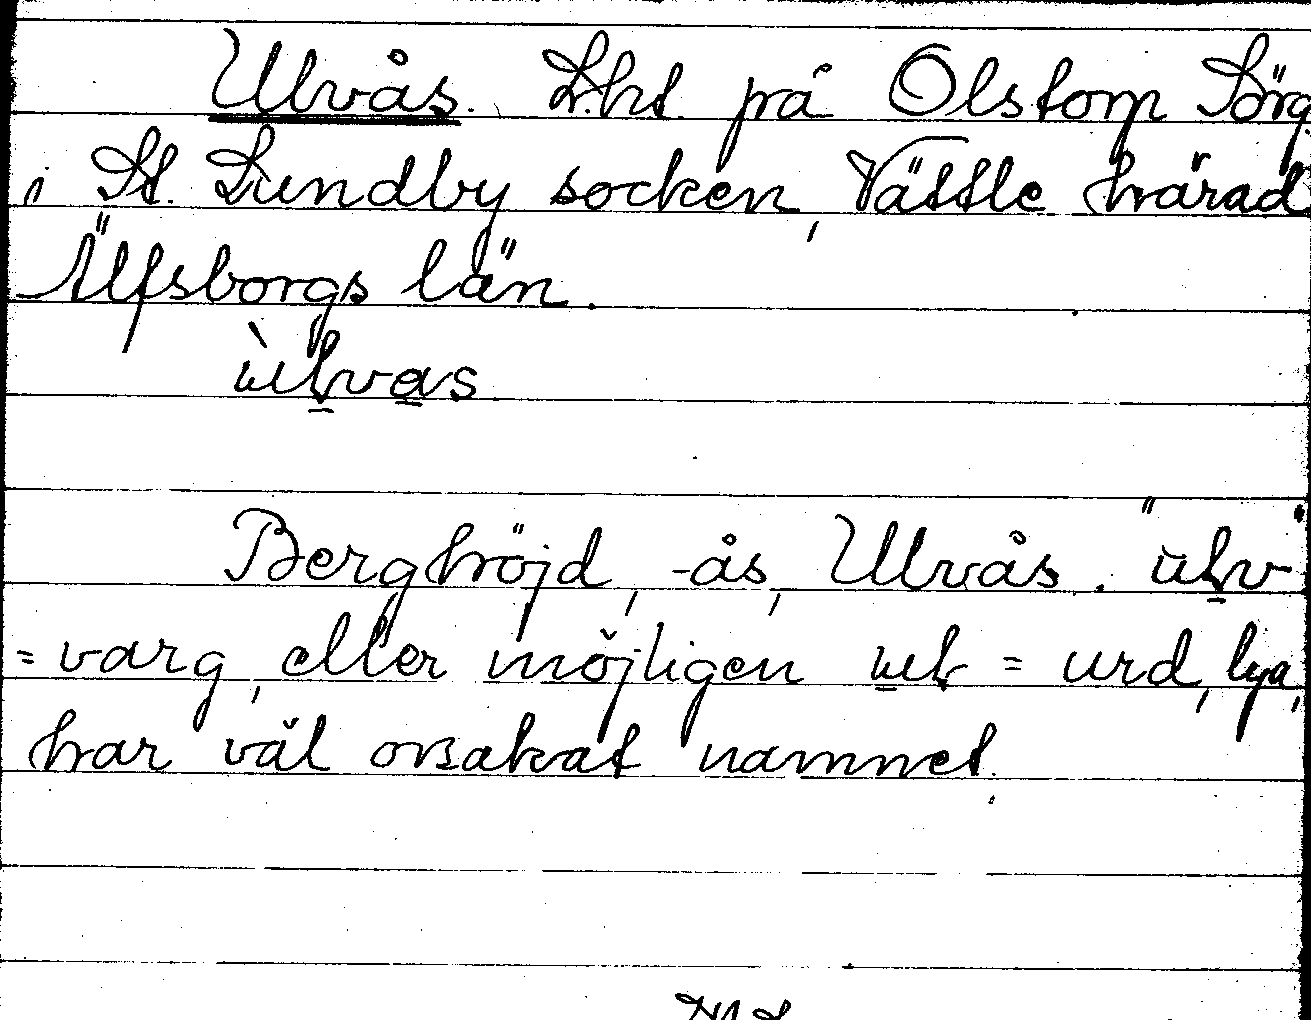 Ulvås. L.ht. på Olstorp Sörg
i St. Lundby socken, Vättle härad
Älfsborgs län.
ùlvas
Berghöjd, -ås, Ulvås. "ùlv"
= varg, eller möjligen ul = urd, lya,
har väl orsakat namnet.